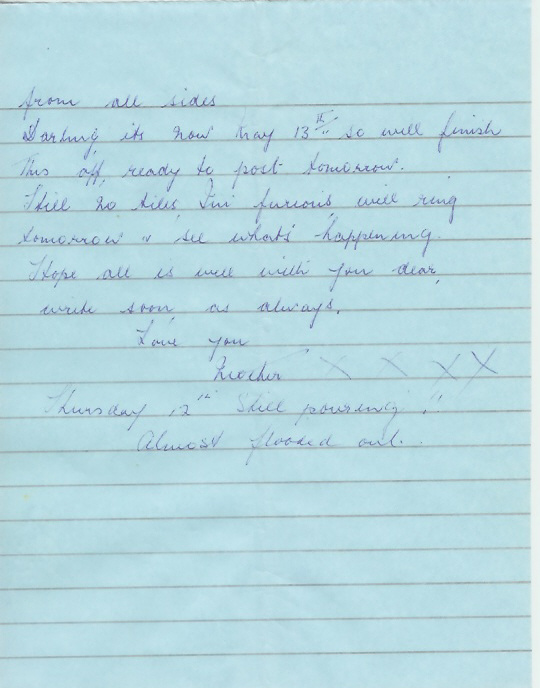 from all sides
Darling its now May 13th so will finish
this off, ready to post tomorrow.
Still no tiles, I'm furious, will ring
tomorrow & see what's happening.
Hope all is well with you dear,
write soon, as always,
Love you
Mother X X X X
Thursday 12th Still pouring!!
Almost flooded out..